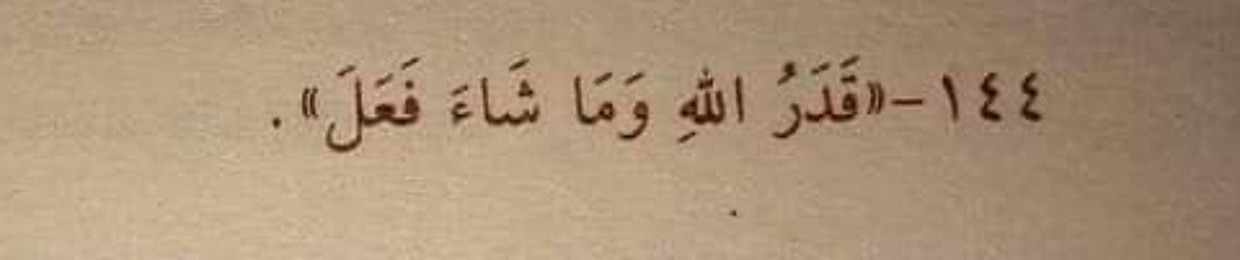 ١٤٤-«قَدَرُ اللهِ وَمَا شَاءَ فَعَلَ».